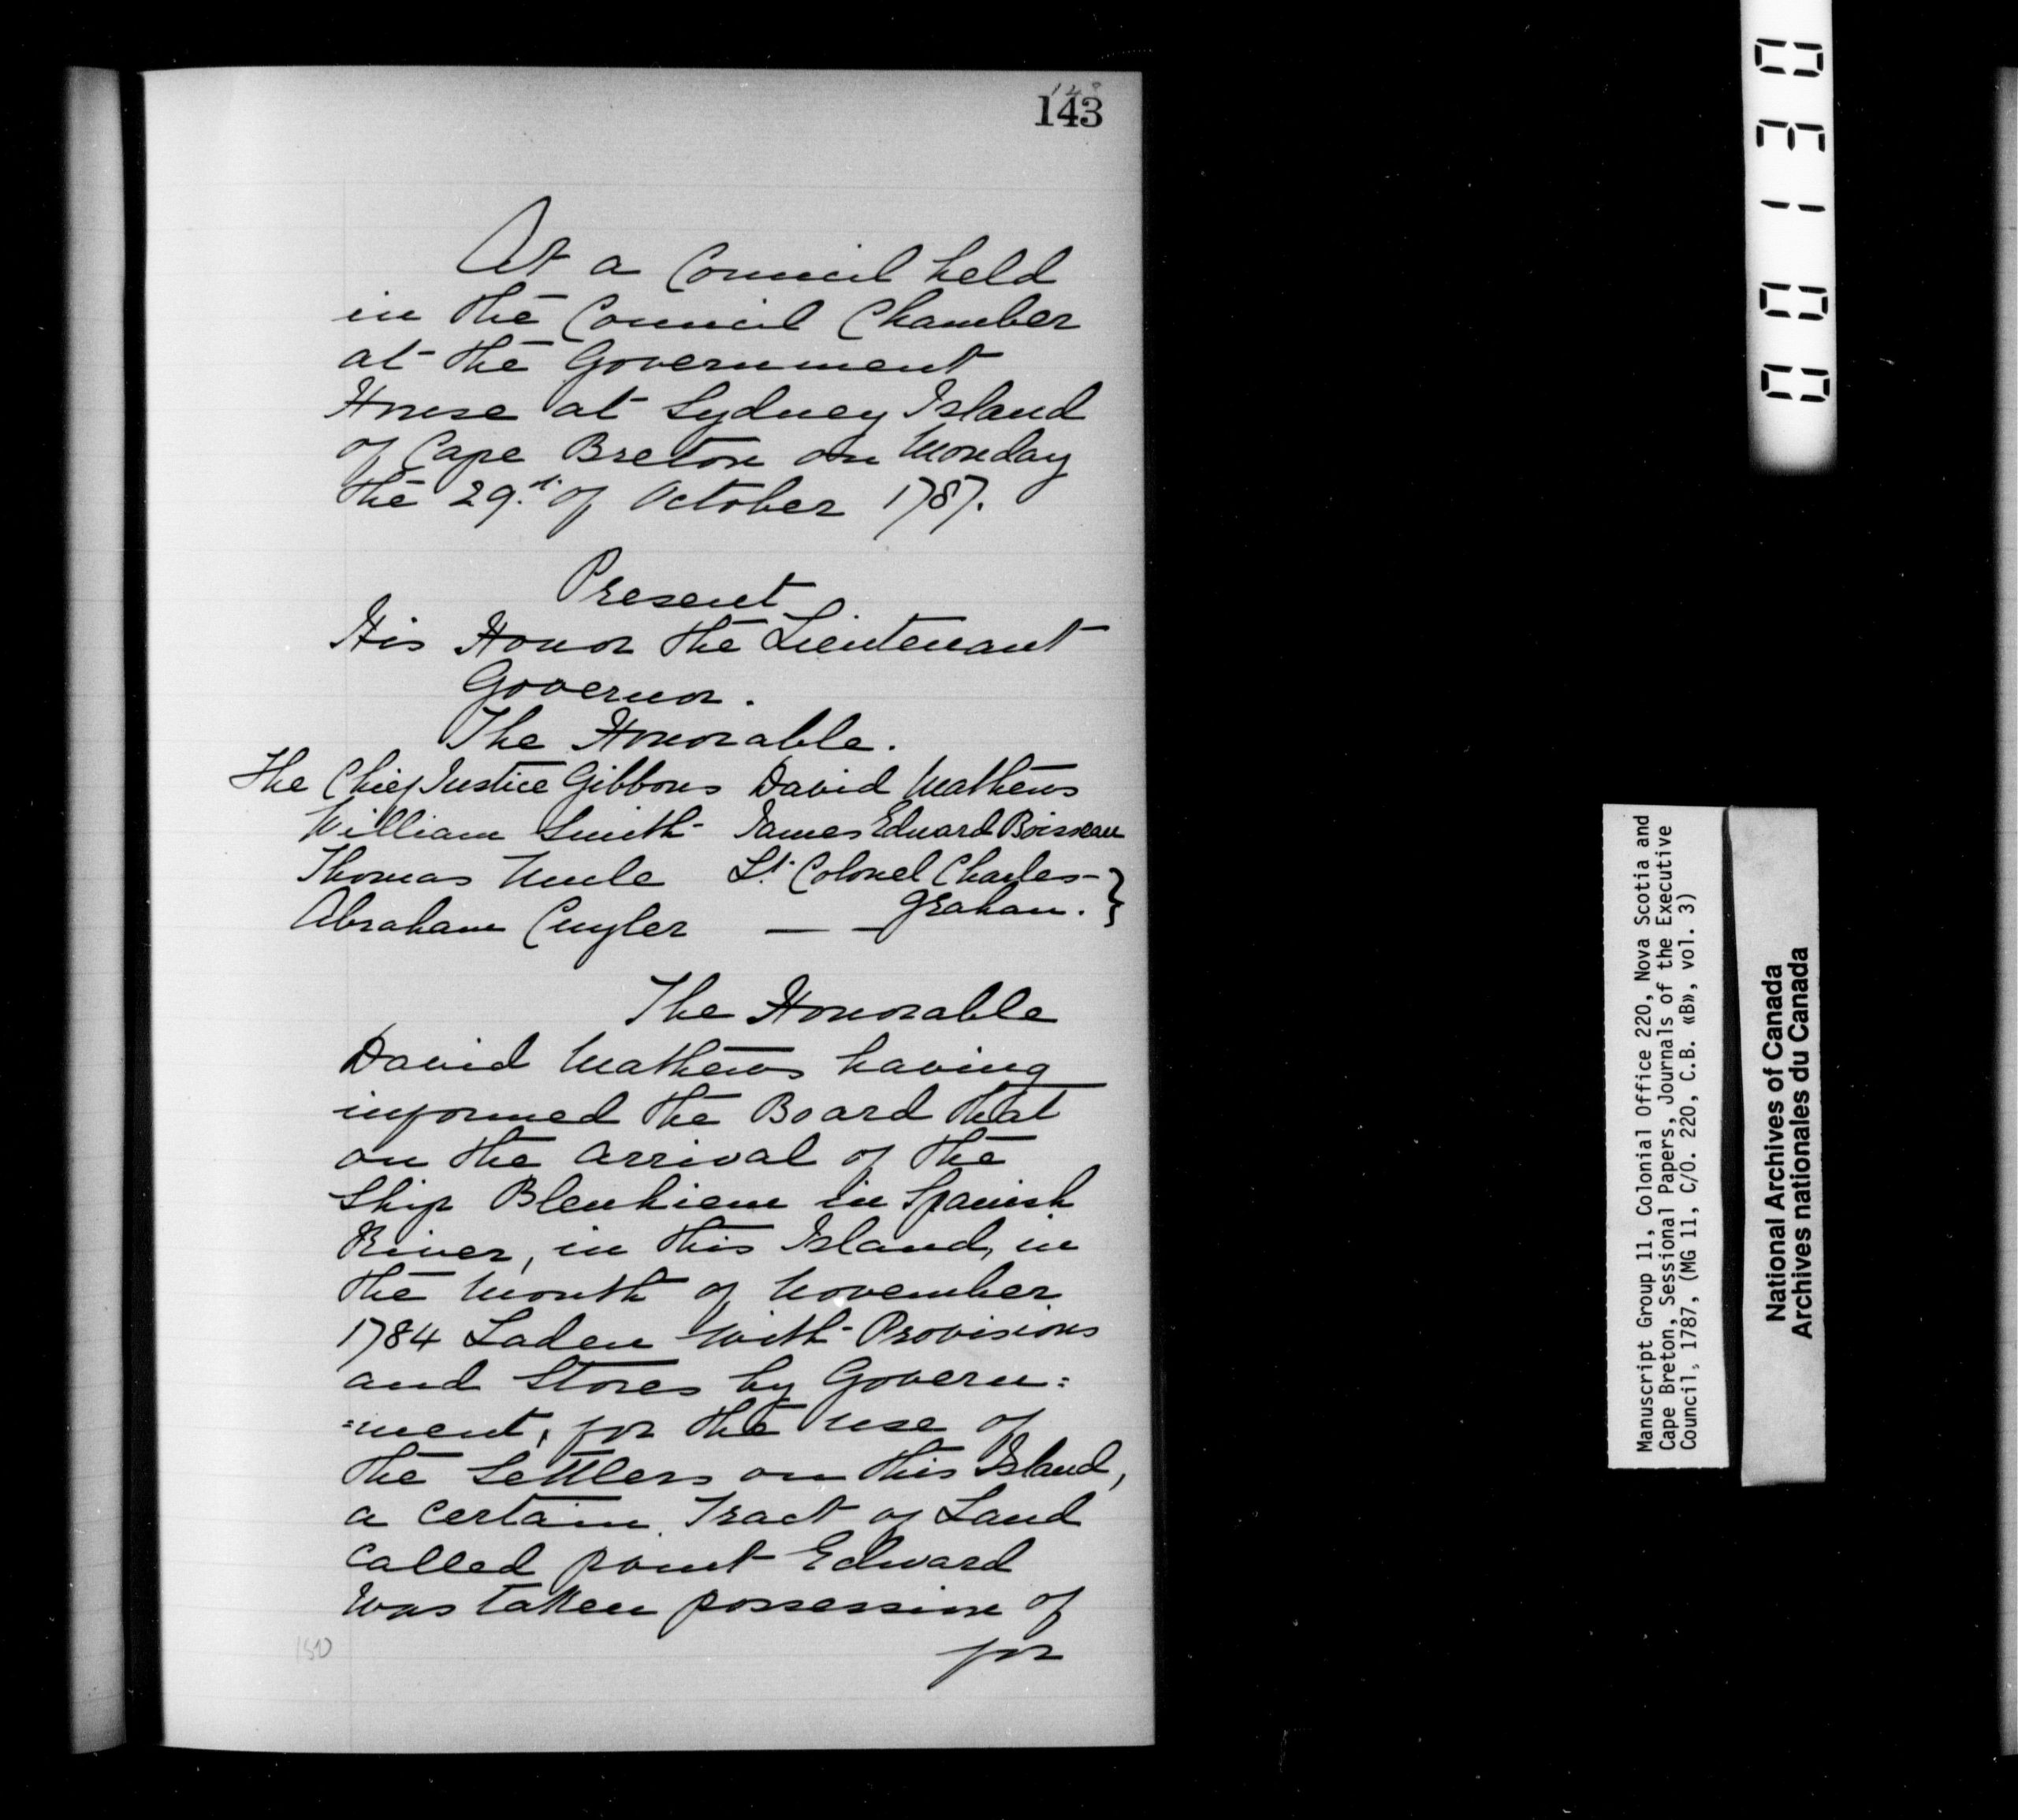 148
143
At a Council held
in the Council Chamber
at the Government
House at Sydney Island
of Cape Breton on Monday
the 29.th of October 1787.
Present
His Honor the Lieutenant
Governor.
The Honorable.
The Chief Justice Gibbons David Mathews
William Smith James Edward Boisseau
Thomas Uncle Lt. Colonel Charles
Abraham Cuyler — — Graham. }
The Honorable
David Mathews having
informed the Board that
on the arrival of the
Ship Blenhiem in Spanish
River, in this Island, in
the Month of November
1784 Laden with Provisions
and Stores by Govern=
=ment, for the use of
the Settlers on this Island,
a certain Tract of Land
called point Edward
was taken possession of
for
150
00130
Manuscript Group 11, Colonial Office 220, Nova Scotia and
Cape Breton, Sessional Papers, Journals of the Executive
Council, 1787, (MG 11, C/O. 220, C.B. «B», vol. 3)
National Archives of Canada
Archives nationales du Canada